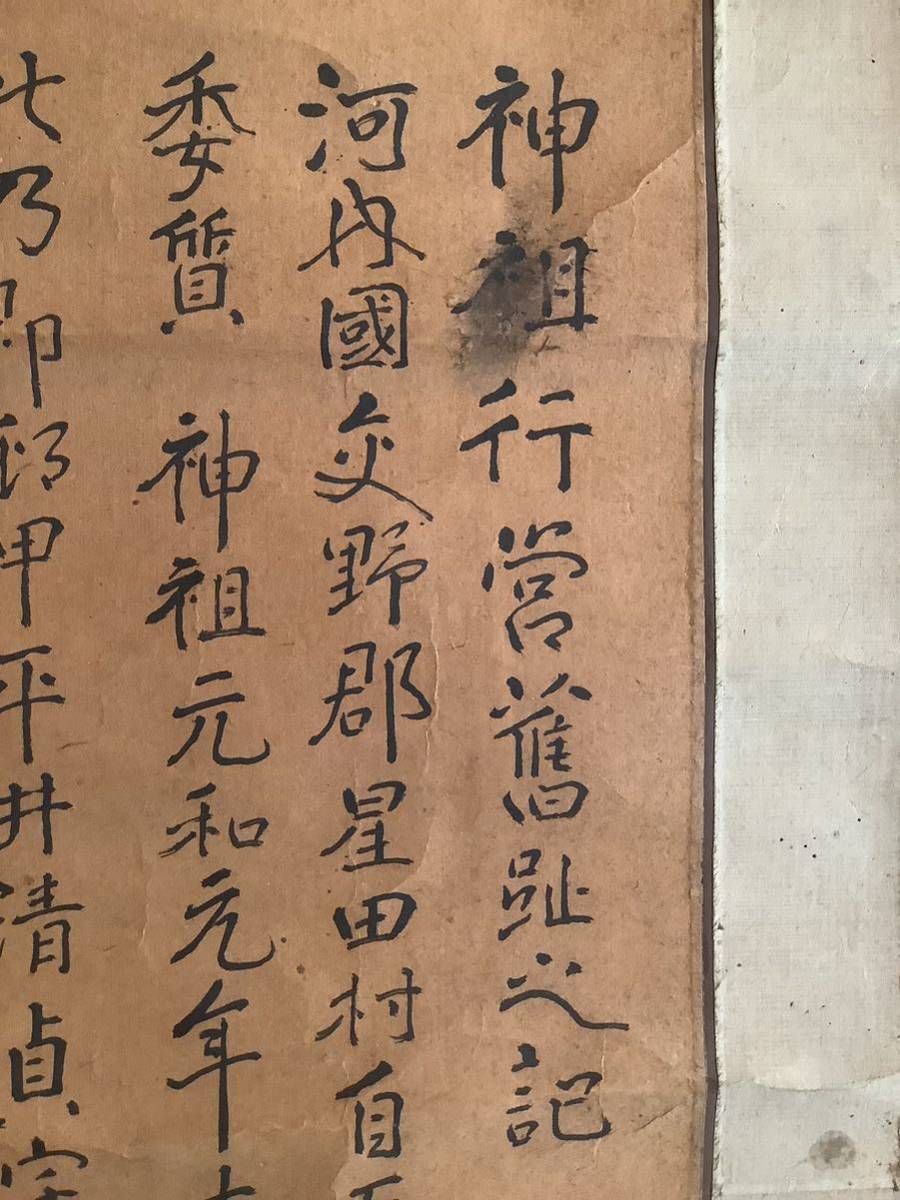 神祖行営舊趾之記
河内國交野郡星田村自
委質 神祖元和元年
乃即邨甲平井清貞